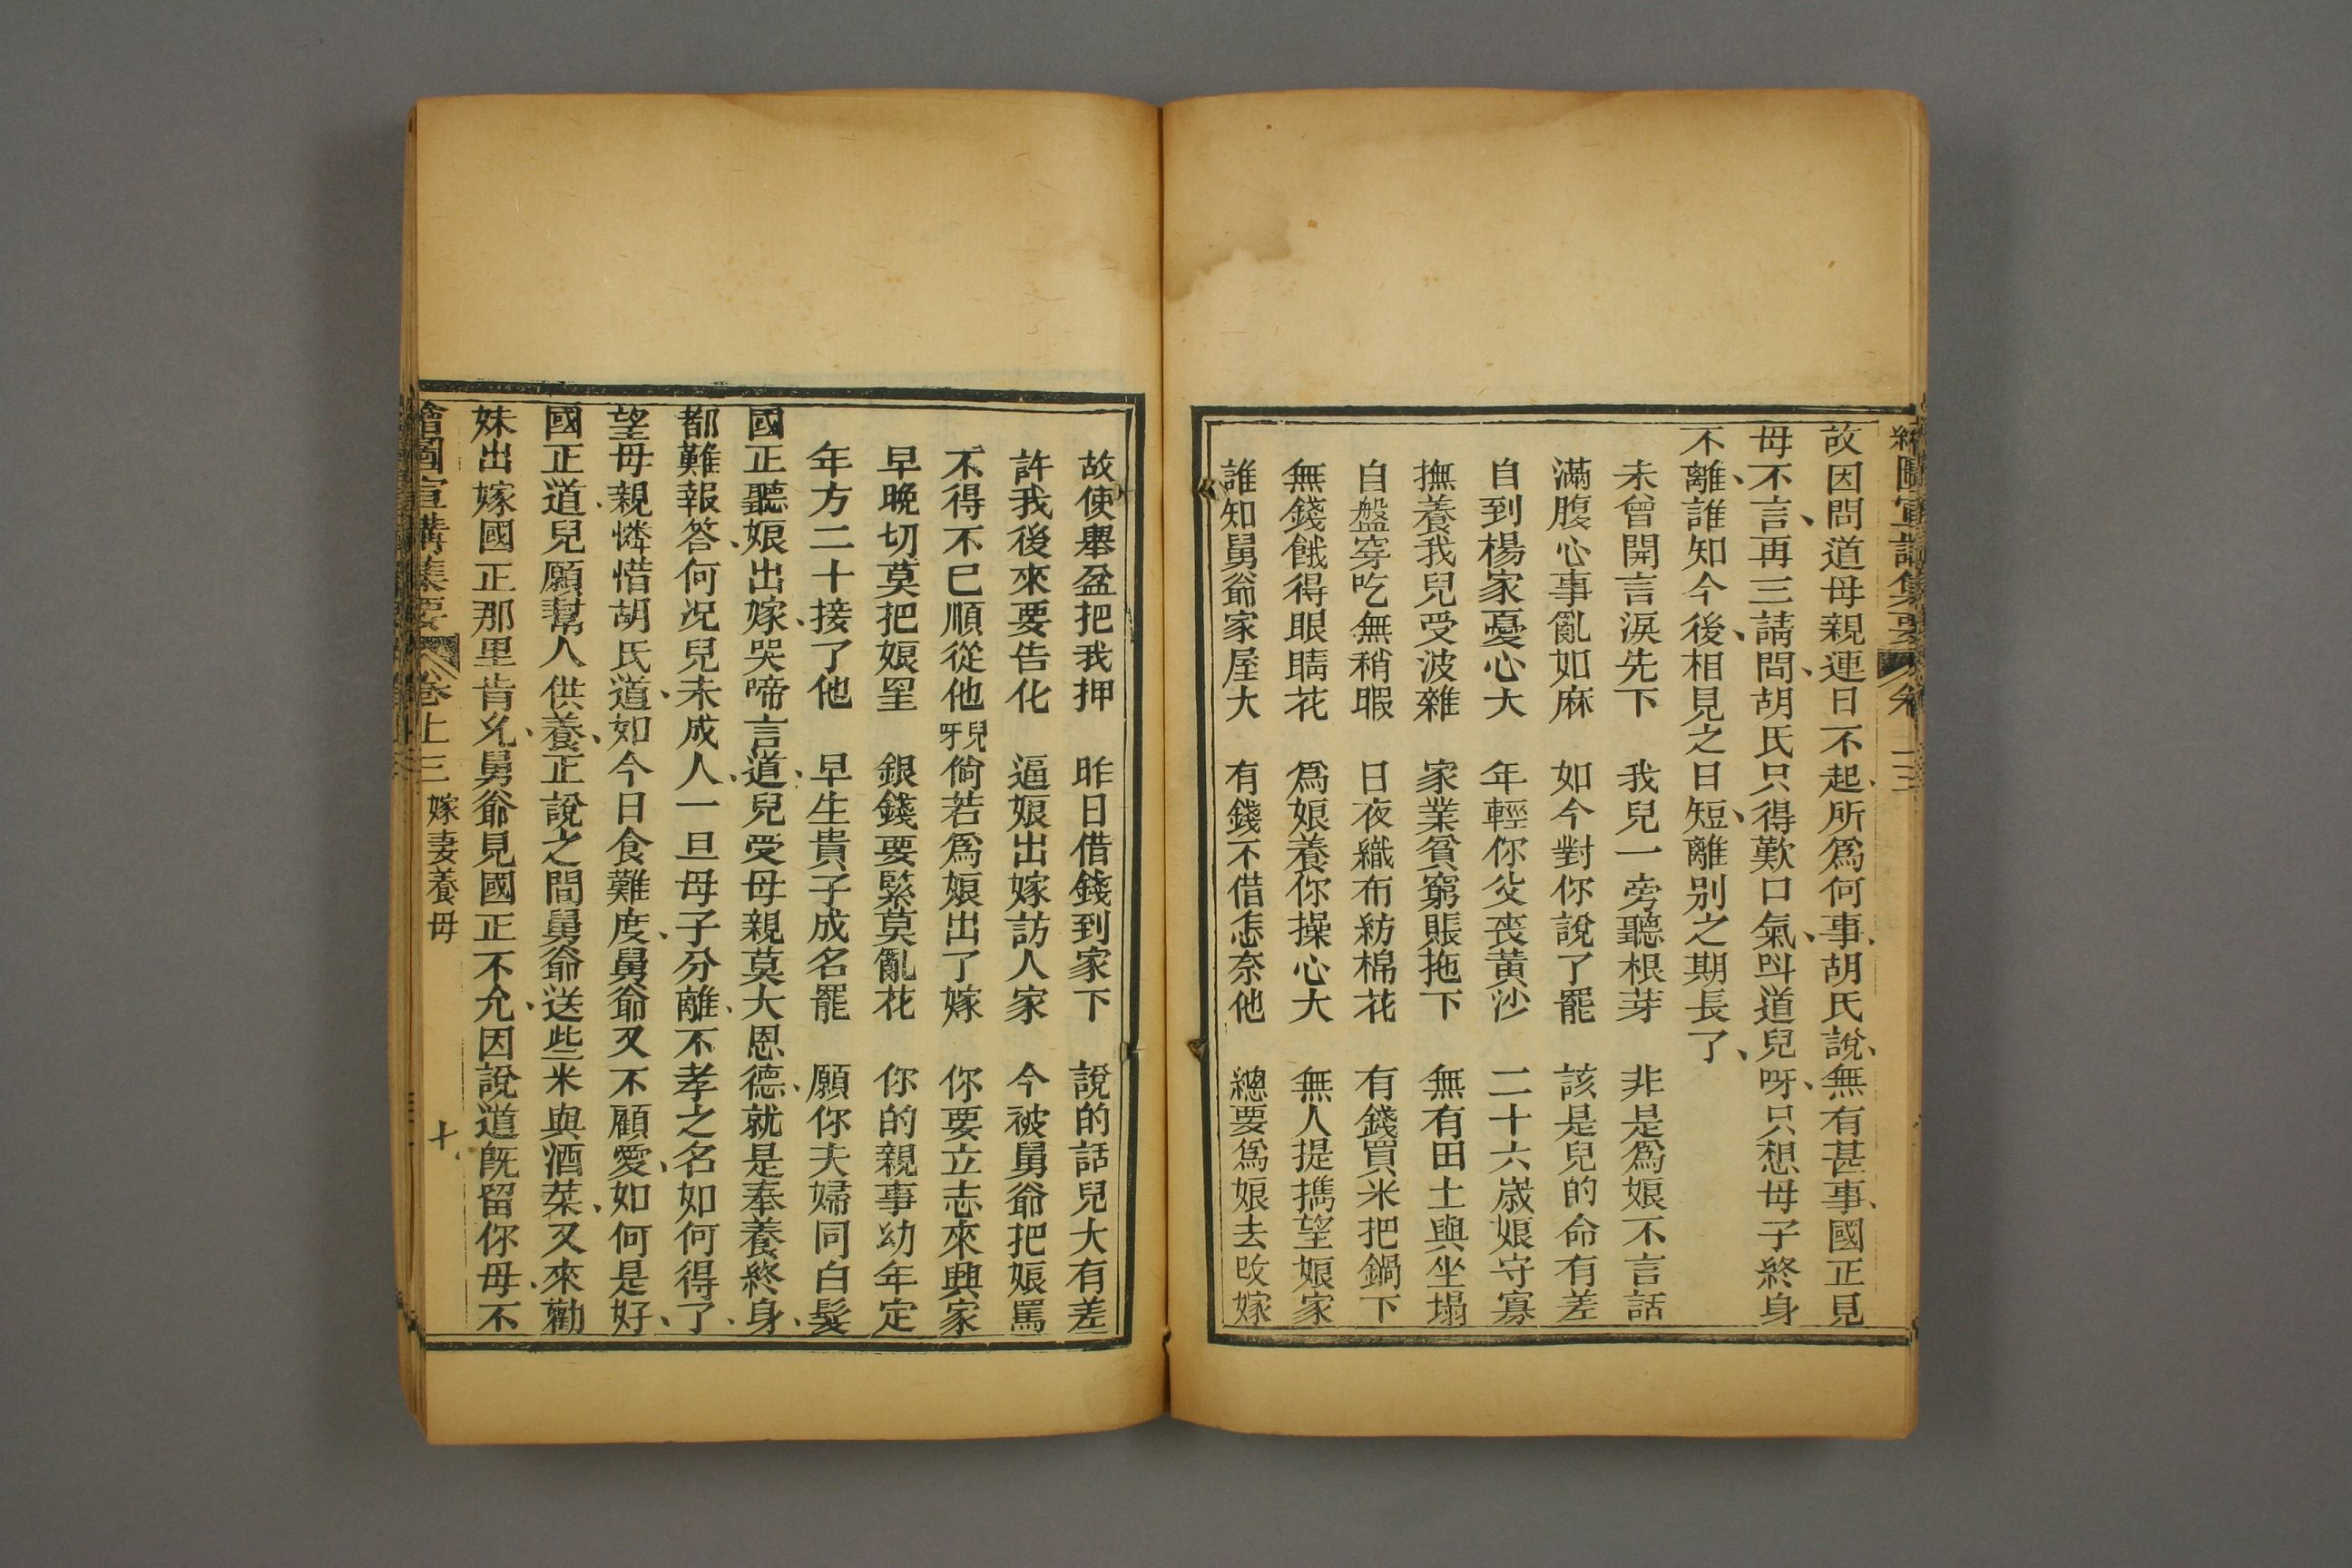 故因問道母親連日不起、所爲何事、胡氏說、無有甚事、國正見
母不言、再三請問、胡氏只得歎口氣、呌道兒呀、只想母子終身
不離、誰知今後、相見之日短、離別之期長了、
未曾開言淚先下　我兒一旁聽根芽　非是爲娘不言話
滿腹心事亂如麻　如今對你說了罷　該是兒的命有差
自到楊家憂心大　年輕你父喪黃沙　二十六歲娘守寡
撫養我兒受波雜　家業貧窮賬拖下　無有田土與坐塌
自盤穿吃無稍暇　日夜織布紡棉花　有錢買米把鍋下
無錢餓得眼睛花　爲娘養你操心大　無人提携望娘家
誰知舅爺家屋大　有錢不借怎奈他　總要爲娘去改嫁
故使舉盆把我押　昨日借錢到家下　說的話兒大有差
許我後來要告化　逼娘出嫁訪人家　今被舅爺把娘罵
不得不已順從他兒呀　倘若爲娘出了嫁　你要立志來興家
早晚切莫把娘罣　銀錢要緊莫亂花　你的親事幼年定
年方二十接了他　早生貴子成名罷　願你夫婦同白髮
國正聽娘出嫁、哭啼言道、兒受母親莫大恩德、就是奉養終身、
都難報答、何况兒未成人、一旦母子分離、不孝之名如何得了、
望母親憐惜胡氏道、如今日食難度、舅爺又不顧愛、如何是好、
國正道、兒願幫人供養、正說之間舅爺送些米與酒菜、又來勸
妹出嫁國正那里肯允、舅爺見國正不允、因說道旣留你母、不
繪圖宣講集要　卷上三　嫁妻養母　十